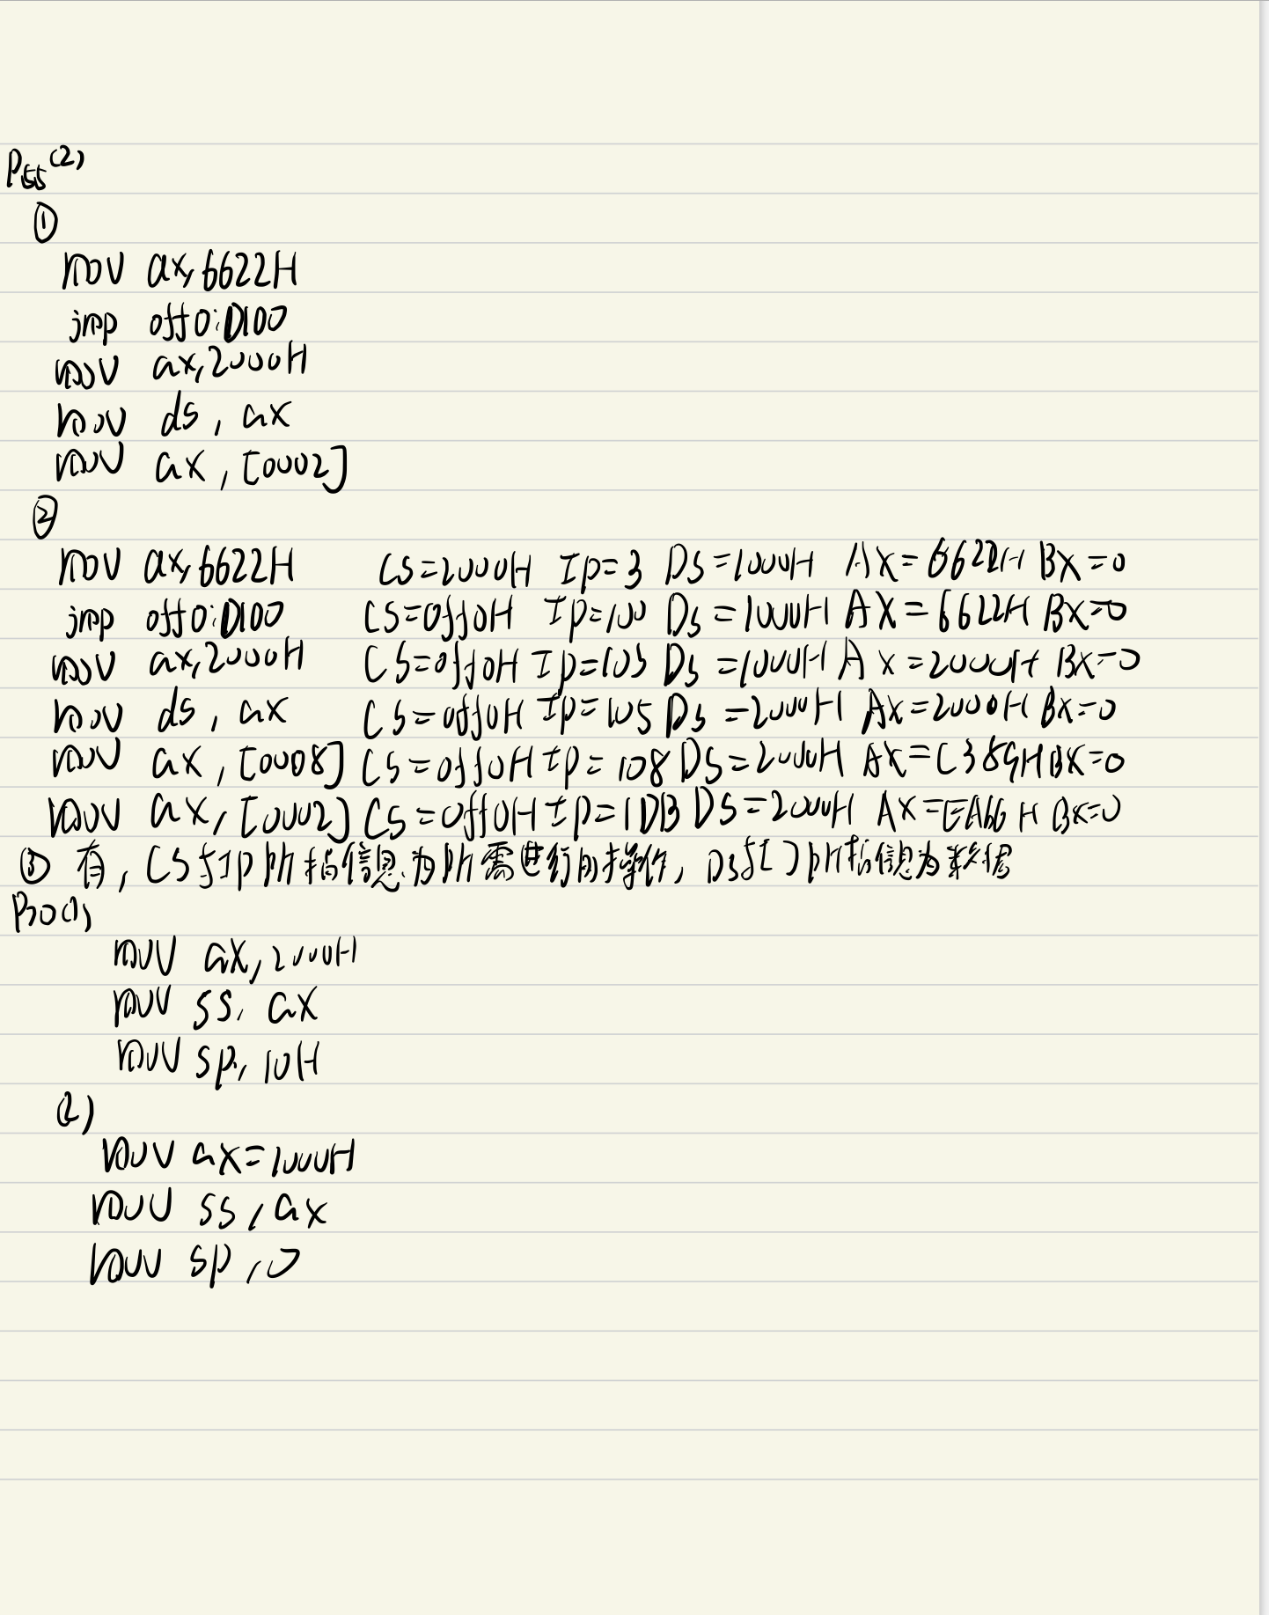 P55(2)
①
mov ax,6622H
jmp 0ff0:0100
mov ax,2000H
mov ds, ax
mov ax, [0002]
②
mov ax,6622H CS=2000H Ip=3 DS=1000H AX=6622H BX=0
jmp 0ff0:0100 CS=0ff0H Ip=100 DS=1000H AX=6622H BX=0
mov ax,2000H CS=0ff0H Ip=103 DS=1000H AX=2000H BX=0
mov ds, ax CS=0ff0H Ip=105 DS=2000H AX=2000H BX=0
mov ax, [0008] CS=0ff0H Ip=108 DS=2000H AX=C389H BX=0
mov ax, [0002] CS=0ff0H Ip=10B DS=2000H AX=EA66H BX=0
③ 有, CS与Ip所指信息为所需进行的操作, DS与[]所指信息为数据
(1)
mov ax, 2000H
mov ss, ax
mov sp, 10H
(2)
mov ax=1000H
mov ss, ax
mov sp, 0